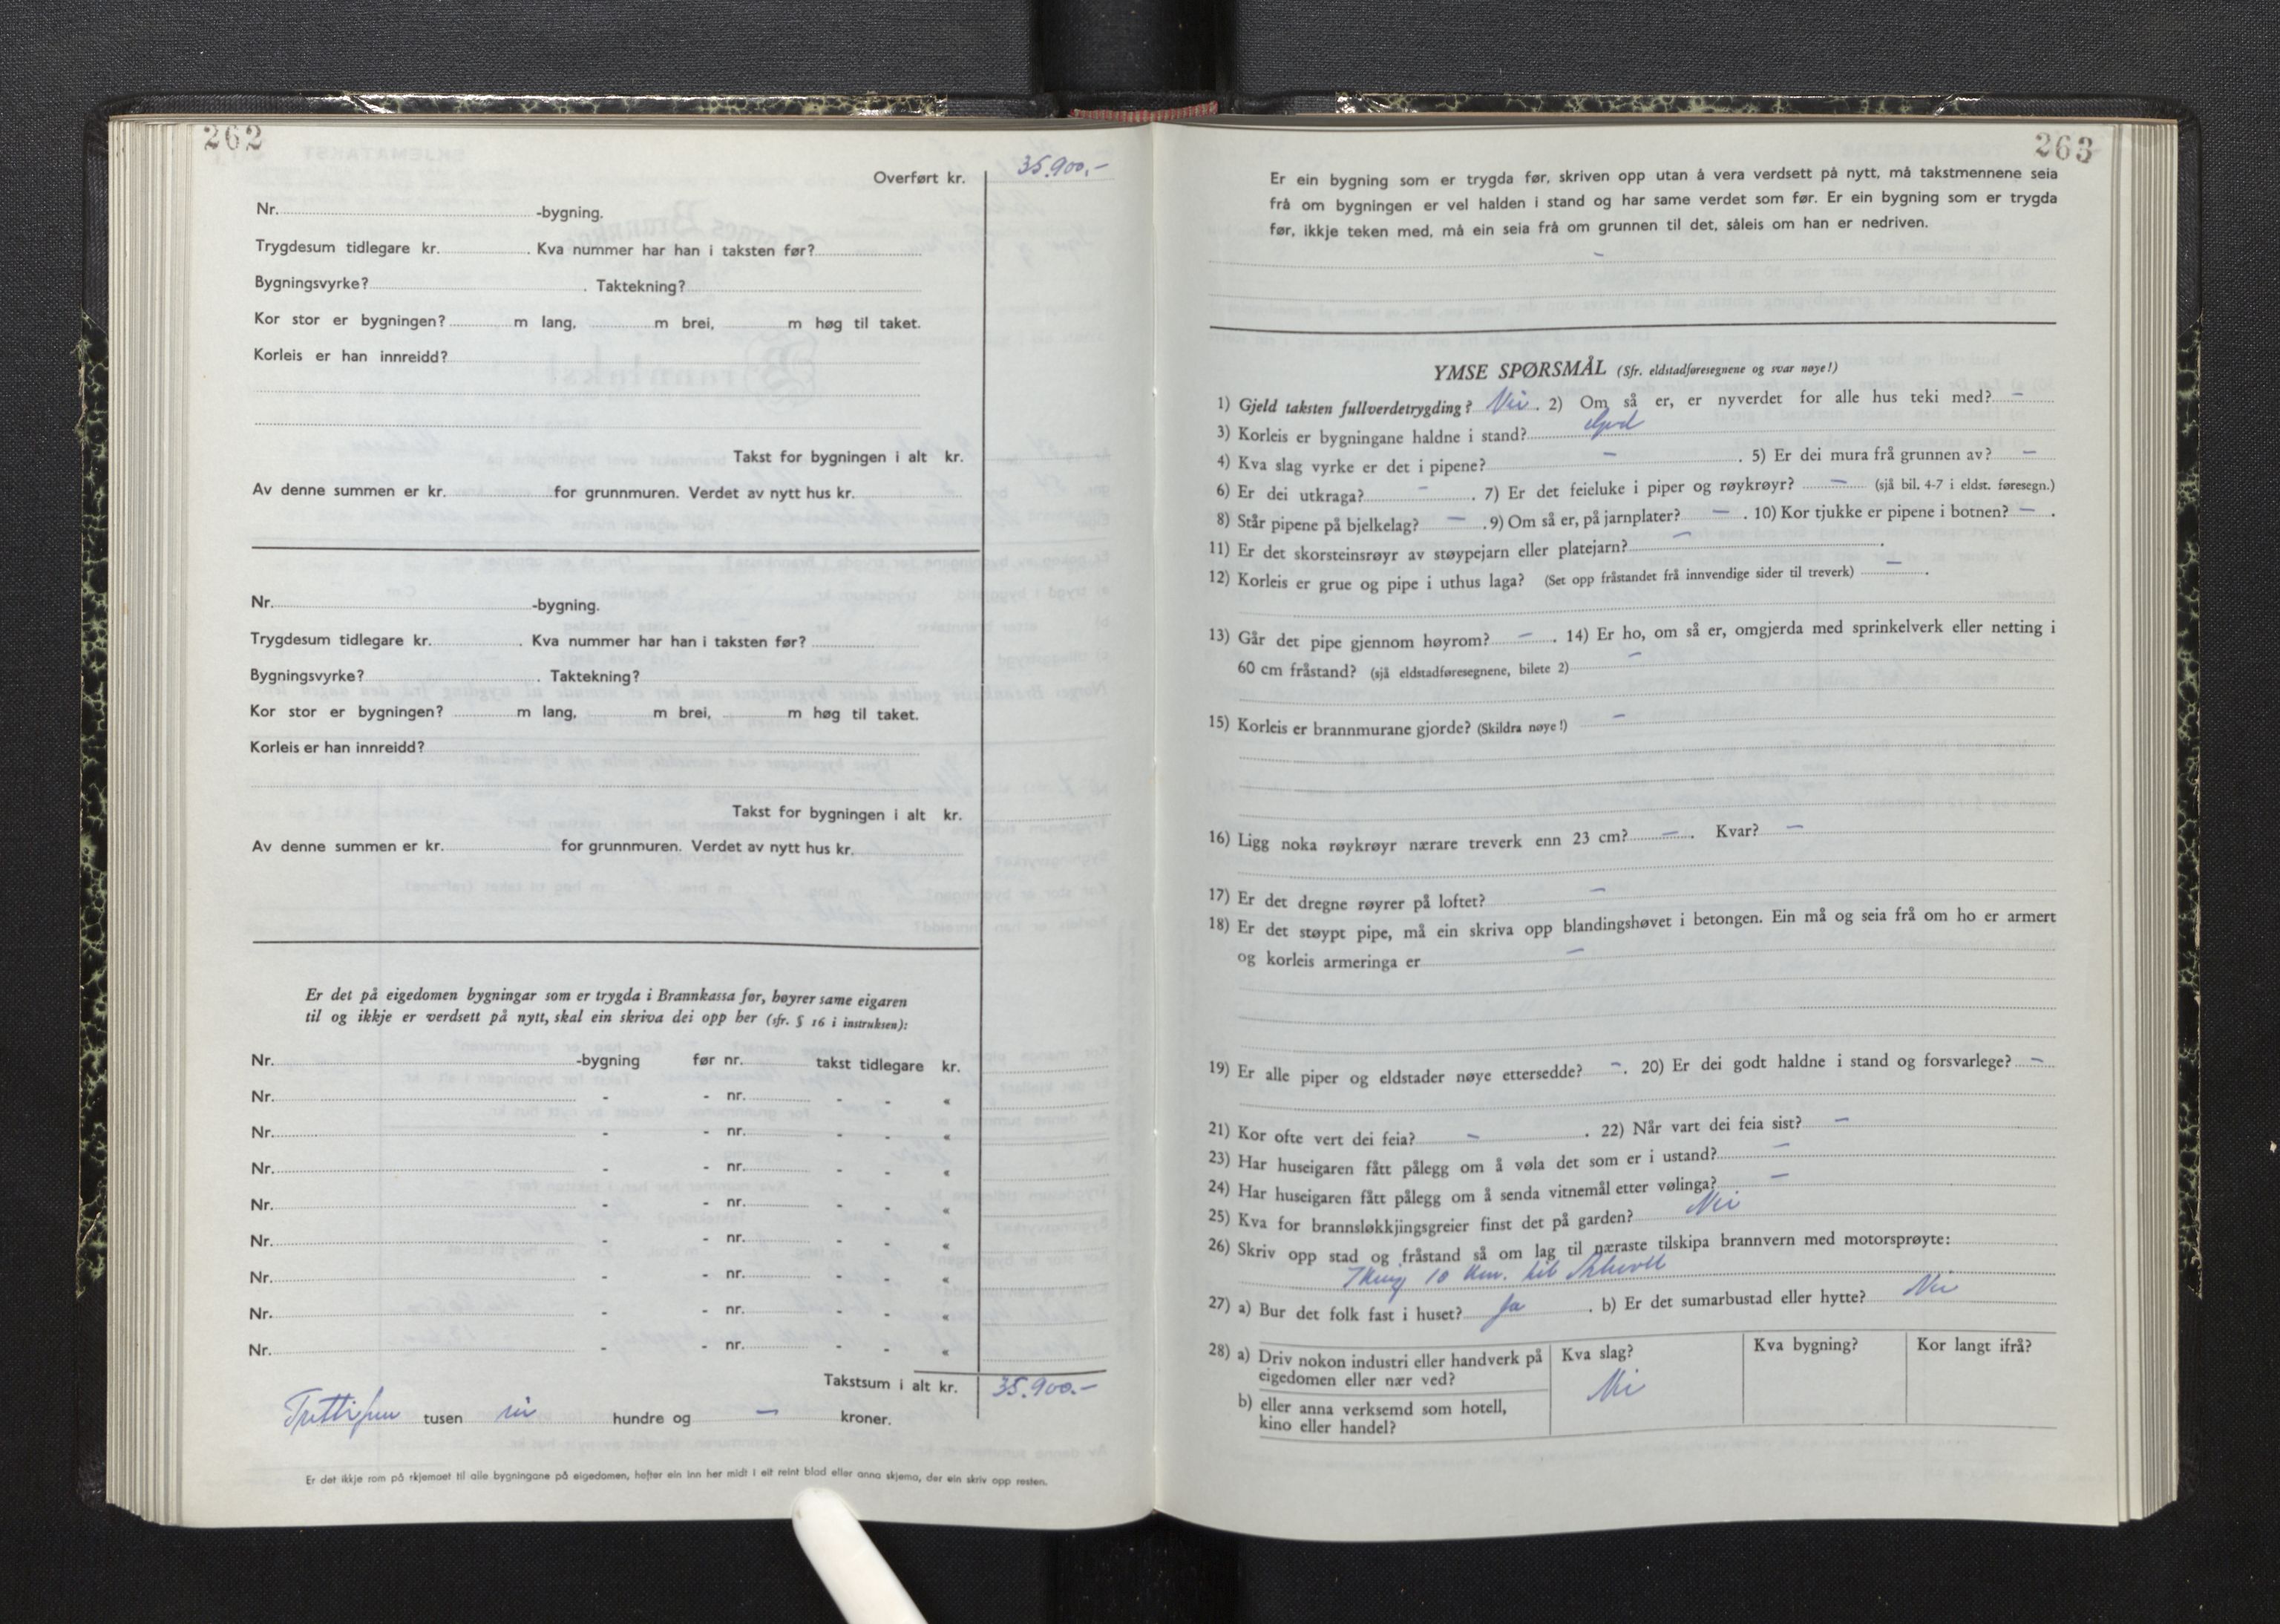 262
Overført kr. 35.900,-
Nr. -bygning.
Trygdesum tidlegare kr. . Kva nummer har han i taksten før?
Bygningsvyrke? . Taktekning?
Kor stor er bygningen? m lang, m brei, m høg til taket.
Korleis er han innreidd?
Takst for bygningen i alt kr.
Av denne summen er kr. for grunnmuren. Verdet av nytt hus kr.
Nr. -bygning.
Trygdesum tidlegare kr. . Kva nummer har han i taksten før?
Bygningsvyrke? . Taktekning?
Kor stor er bygningen? m lang, m brei, m høg til taket.
Korleis er han innreidd?
Takst for bygningen i alt kr.
Av denne summen er kr. for grunnmuren. Verdet av nytt hus kr.
Er det på eigedomen bygningar som er trygda i Brannkassa før, høyrer same eigaren
til og ikkje er verdsett på nytt, skal ein skriva dei opp her (sfr. § 16 i instruksen):
Nr. -bygning før nr. takst tidlegare kr.
Nr. - - nr. - - «
Nr. - - nr. - - «
Nr. - - nr. - - «
Nr. - - nr. - - «
Nr. - - nr. - - «
Nr. - - nr. - - «
Nr. - - nr. - - «
Nr. - - nr. - - «
Takstsum i alt kr. 35.900.-
Trettifem tusen ni hundre og - kroner.
Er det ikkje rom på skjemaet til alle bygningane på eigedomen, hefter ein inn her midt i eit reint blad eller anna skjema, der ein skriv opp resten.
263
Er ein bygning som er trygda før, skriven opp utan å vera verdsett på nytt, må takstmennene seia
frå om bygningen er vel halden i stand og har same verdet som før. Er ein bygning som er trygda
før, ikkje teken med, må ein seia frå om grunnen til det, såleis om han er nedriven.
-
YMSE SPØRSMÅL (Sfr. eldstadføresegnene og svar nøye!)
1) Gjeld taksten fullverdetrygding? Nei. 2) Om så er, er nyverdet for alle hus teki med? -
3) Korleis er bygningane haldne i stand? God
4) Kva slag vyrke er det i pipene? - . 5) Er dei mura frå grunnen av? -
6) Er dei utkraga? - . 7) Er det feieluke i piper og røykrøyr? - (sjå bil. 4-7 i eldst. føresegn.)
8) Står pipene på bjelkelag? - . 9) Om så er, på jarnplater? - . 10) Kor tjukke er pipene i botnen? - .
11) Er det skorsteinsrøyr av støypejarn eller platejarn? - .
12) Korleis er grue og pipe i uthus laga? (Set opp fråstandet frå innvendige sider til treverk) - .
13) Går det pipe gjennom høyrom? - . 14) Er ho, om så er, omgjerda med sprinkelverk eller netting i
60 cm fråstand? (sjå eldstadføresegnene, bilete 2) -
15) Korleis er brannmurane gjorde? (Skildra nøye!) -
16) Ligg noka røykrøyr nærare treverk enn 23 cm? - . Kvar? -
17) Er det dregne røyrer på loftet? -
18) Er det støypt pipe, må ein skriva opp blandingshøvet i betongen. Ein må og seia frå om ho er armert
og korleis armeringa er -
19) Er alle piper og eldstader nøye ettersedde? - . 20) Er dei godt haldne i stand og forsvarlege? -
21) Kor ofte vert dei feia? - . 22) Når vart dei feia sist? -
23) Har huseigaren fått pålegg om å vøla det som er i ustand? -
24) Har huseigaren fått pålegg om å senda vitnemål etter vølinga? -
25) Kva for brannsløkkjingsgreier finst det på garden? Nei
26) Skriv opp stad og fråstand så om lag til næraste tilskipa brannvern med motorsprøyte:
10 km. til
27) a) Bur det folk fast i huset? Ja . b) Er det sumarbustad eller hytte? Nei
28) a) Driv nokon industri eller handverk på Kva slag? Kva bygning? Kor langt ifrå?
eigedomen eller nær ved? Nei
b) eller anna verksemd som hotell,
kino eller handel?